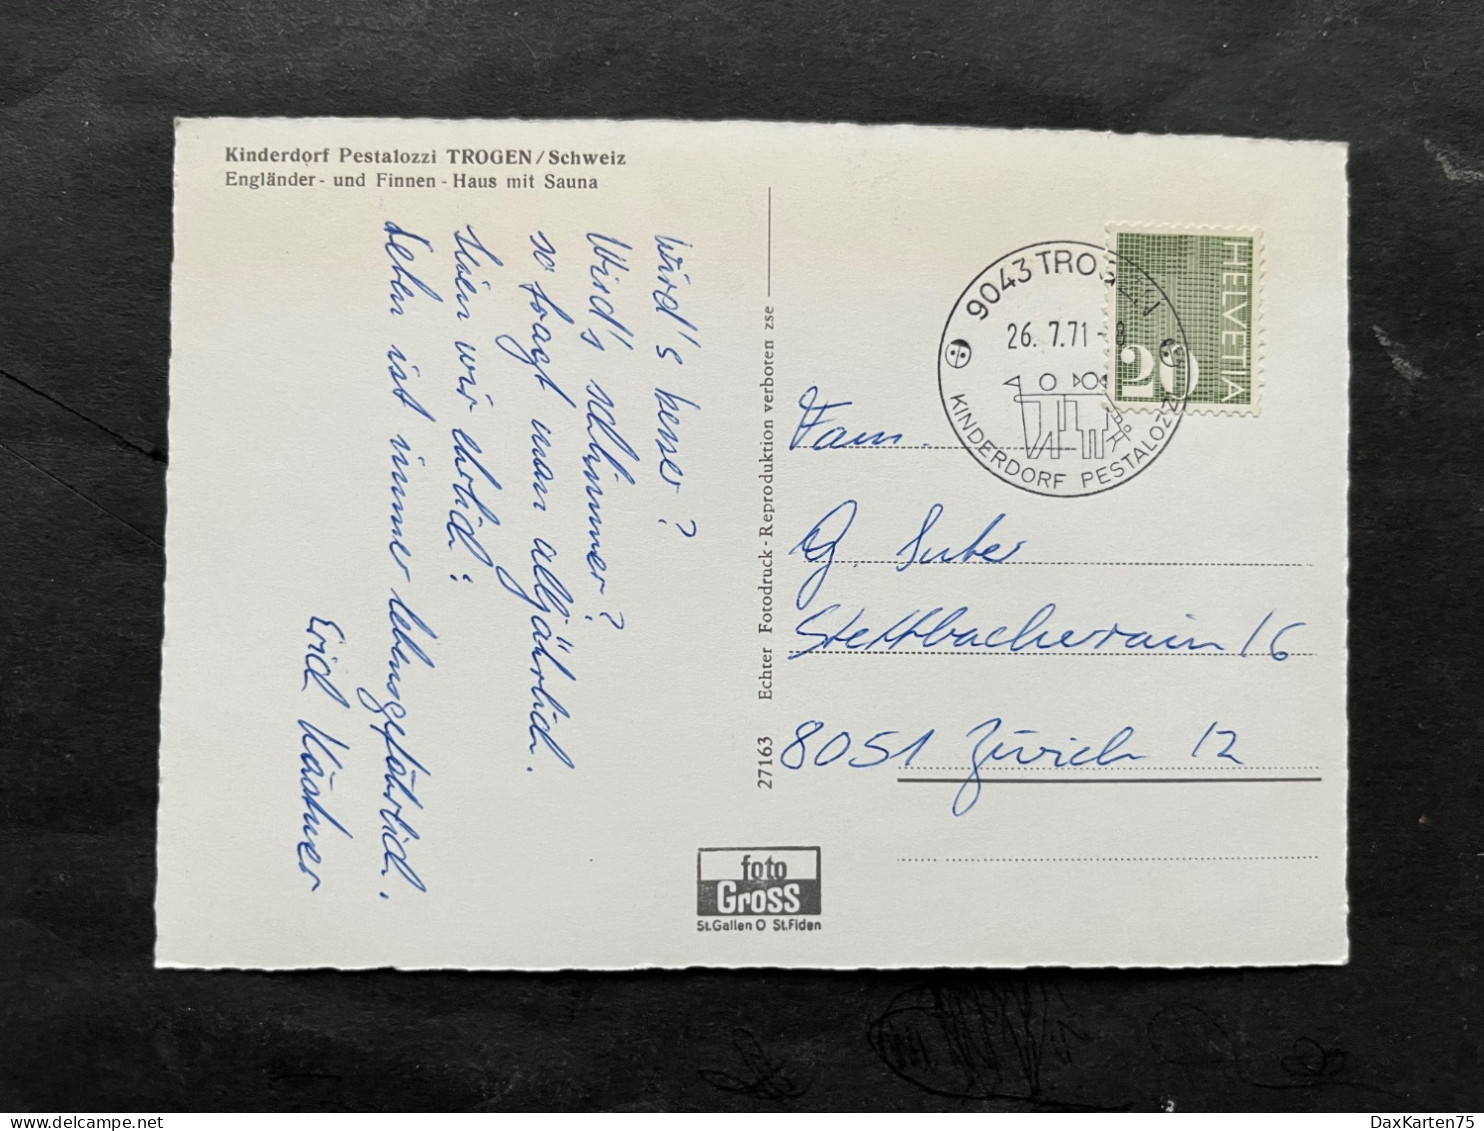 Kinderdorf Pestalozzi TROGEN/Schweiz
Engländer- und Finnen-Haus mit Sauna
Wird's besser?
Wird's schlimmer?
so fragt man alljährlich.
Seien wir ehrlich:
Leben ist immer lebensgefährlich.
Erich Kästner
27163 Echter Fotodruck - Reproduktion verboten zse
9043 TROGEN
26. 7.71 - 8
KINDERDORF PESTALOZZI
HELVETIA
20
Fam.
G. Suter
Stettbacherrain 16
8051 Zürich 12
foto
Gross
St.Gallen O St.Fiden
DaxKarten75